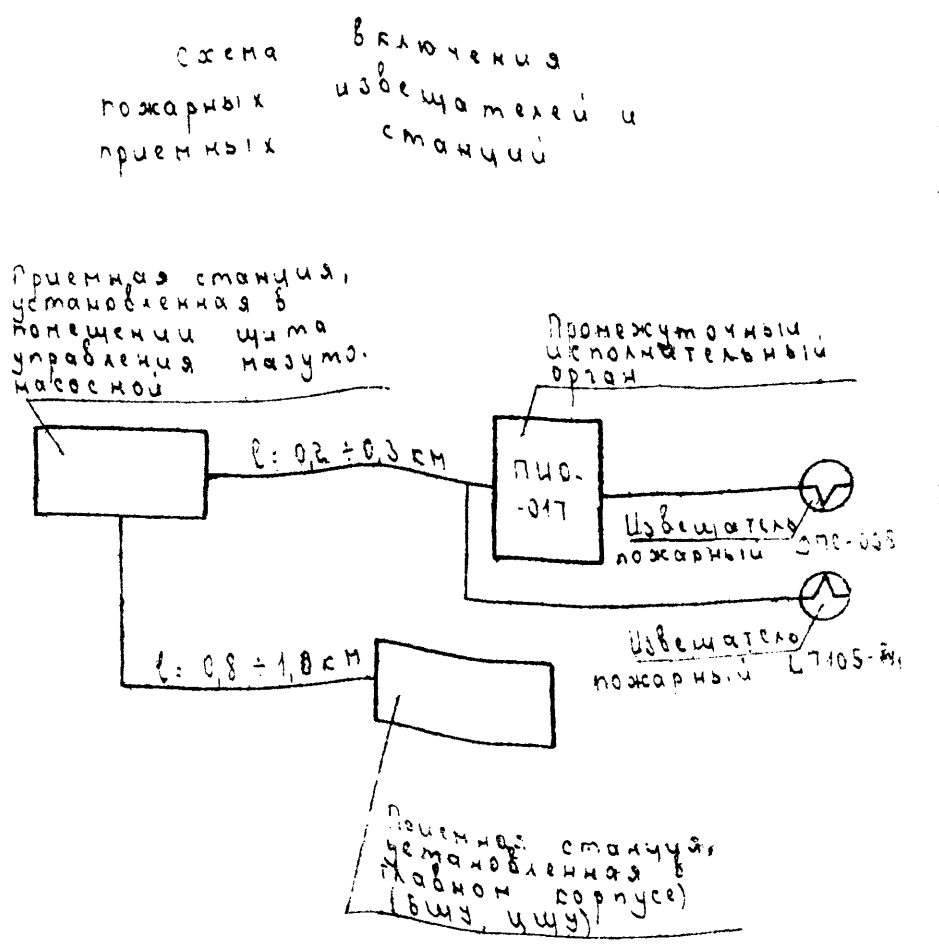 схема включения
пожарных извещателей и
приемных станций
Приемная станция,
установленная в
помещении щита
управления мазуто-
насосной
Промежуточный
исполнительный
орган
ℓ: 0,2 ÷ 0,3 км
ПИО-
-017
Извещатель
пожарный
Извещатель
пожарный
ℓ: 0,8 ÷ 1,0 км
Приемная станция,
установленная в
главном корпусе)
(БЩУ, ЦЩУ)